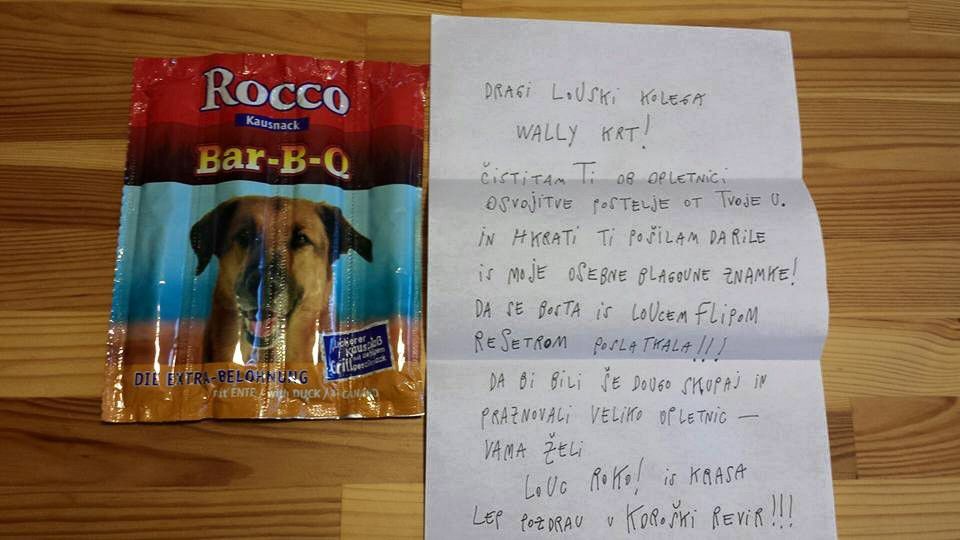 Rocco
Kausnack
Bar-B-Q
Kauspaß
DIE EXTRA-BELOHNUNG
mit ENTE / with DUCK /
DRAGI LOUSKI KOLEGA
WALLY KRT!
ČISTITAM TI OB OPLETNICI
OSVOJITVE POSTELJE OT TVOJE U.
IN HKRATI TI POŠILAM DARILE
IS MOJE OSEBNE BLAGOUNE ZNAMKE!
DA SE BOSTA IS LOUCEM FLIPOM
REŠETROM POSLATKALA!!!
DA BI BILI ŠE DOUGO SKUPAJ IN
PRAZNOVALI VELIKO OPLETNIC —
VAMA ŽELI
LOUC ROKO! IS KRASA
LEP POZDRAU U KOROŠKI REVIR!!!